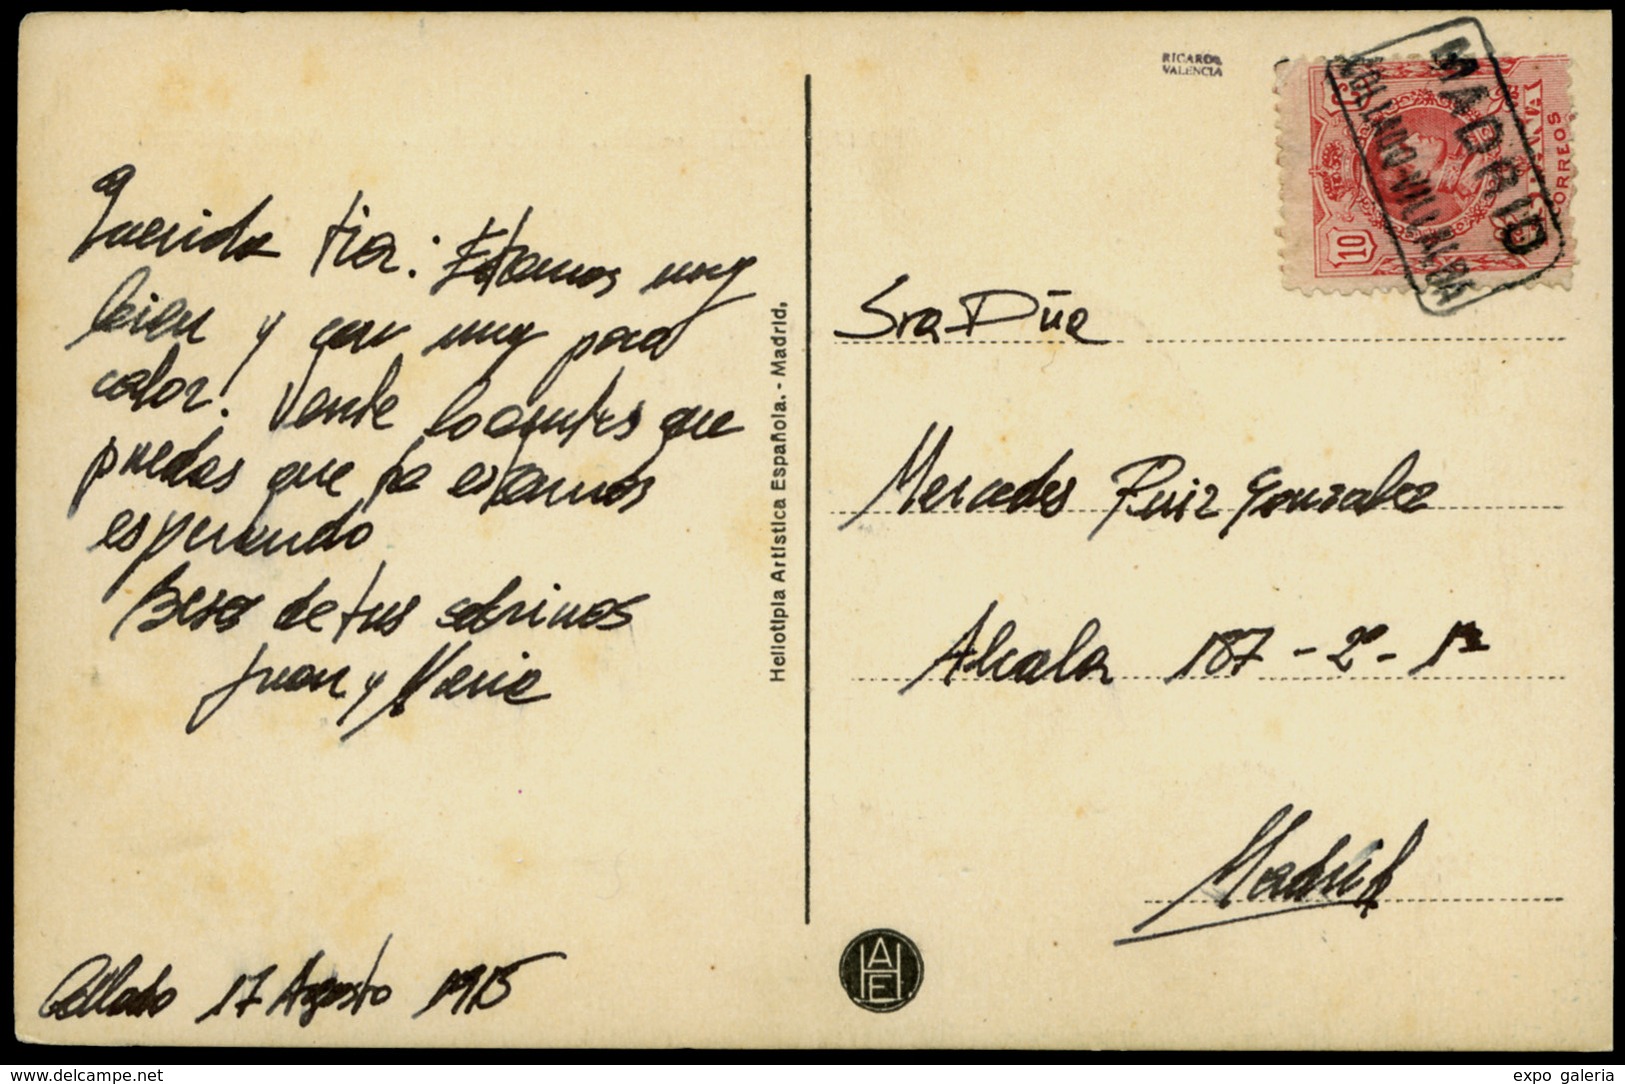 Querida tia: Estamos muy
bien y con muy poco
calor. Vente lo antes que
puedas que te estamos
esperando
Besos de tus sobrinos
Juan y Maria
Collado 17 Agosto 1915
Heliotipia Artística Española. - Madrid.
RICARDO
VALENCIA
MADRID
COLLADO-VILLALBA
CORREOS
10
Sra Dña
Mercedes Ruiz Gonzalez
Alcala 187 - 2º - 1ª
Madrid
HAE
www.delcampe.net
expo galeria